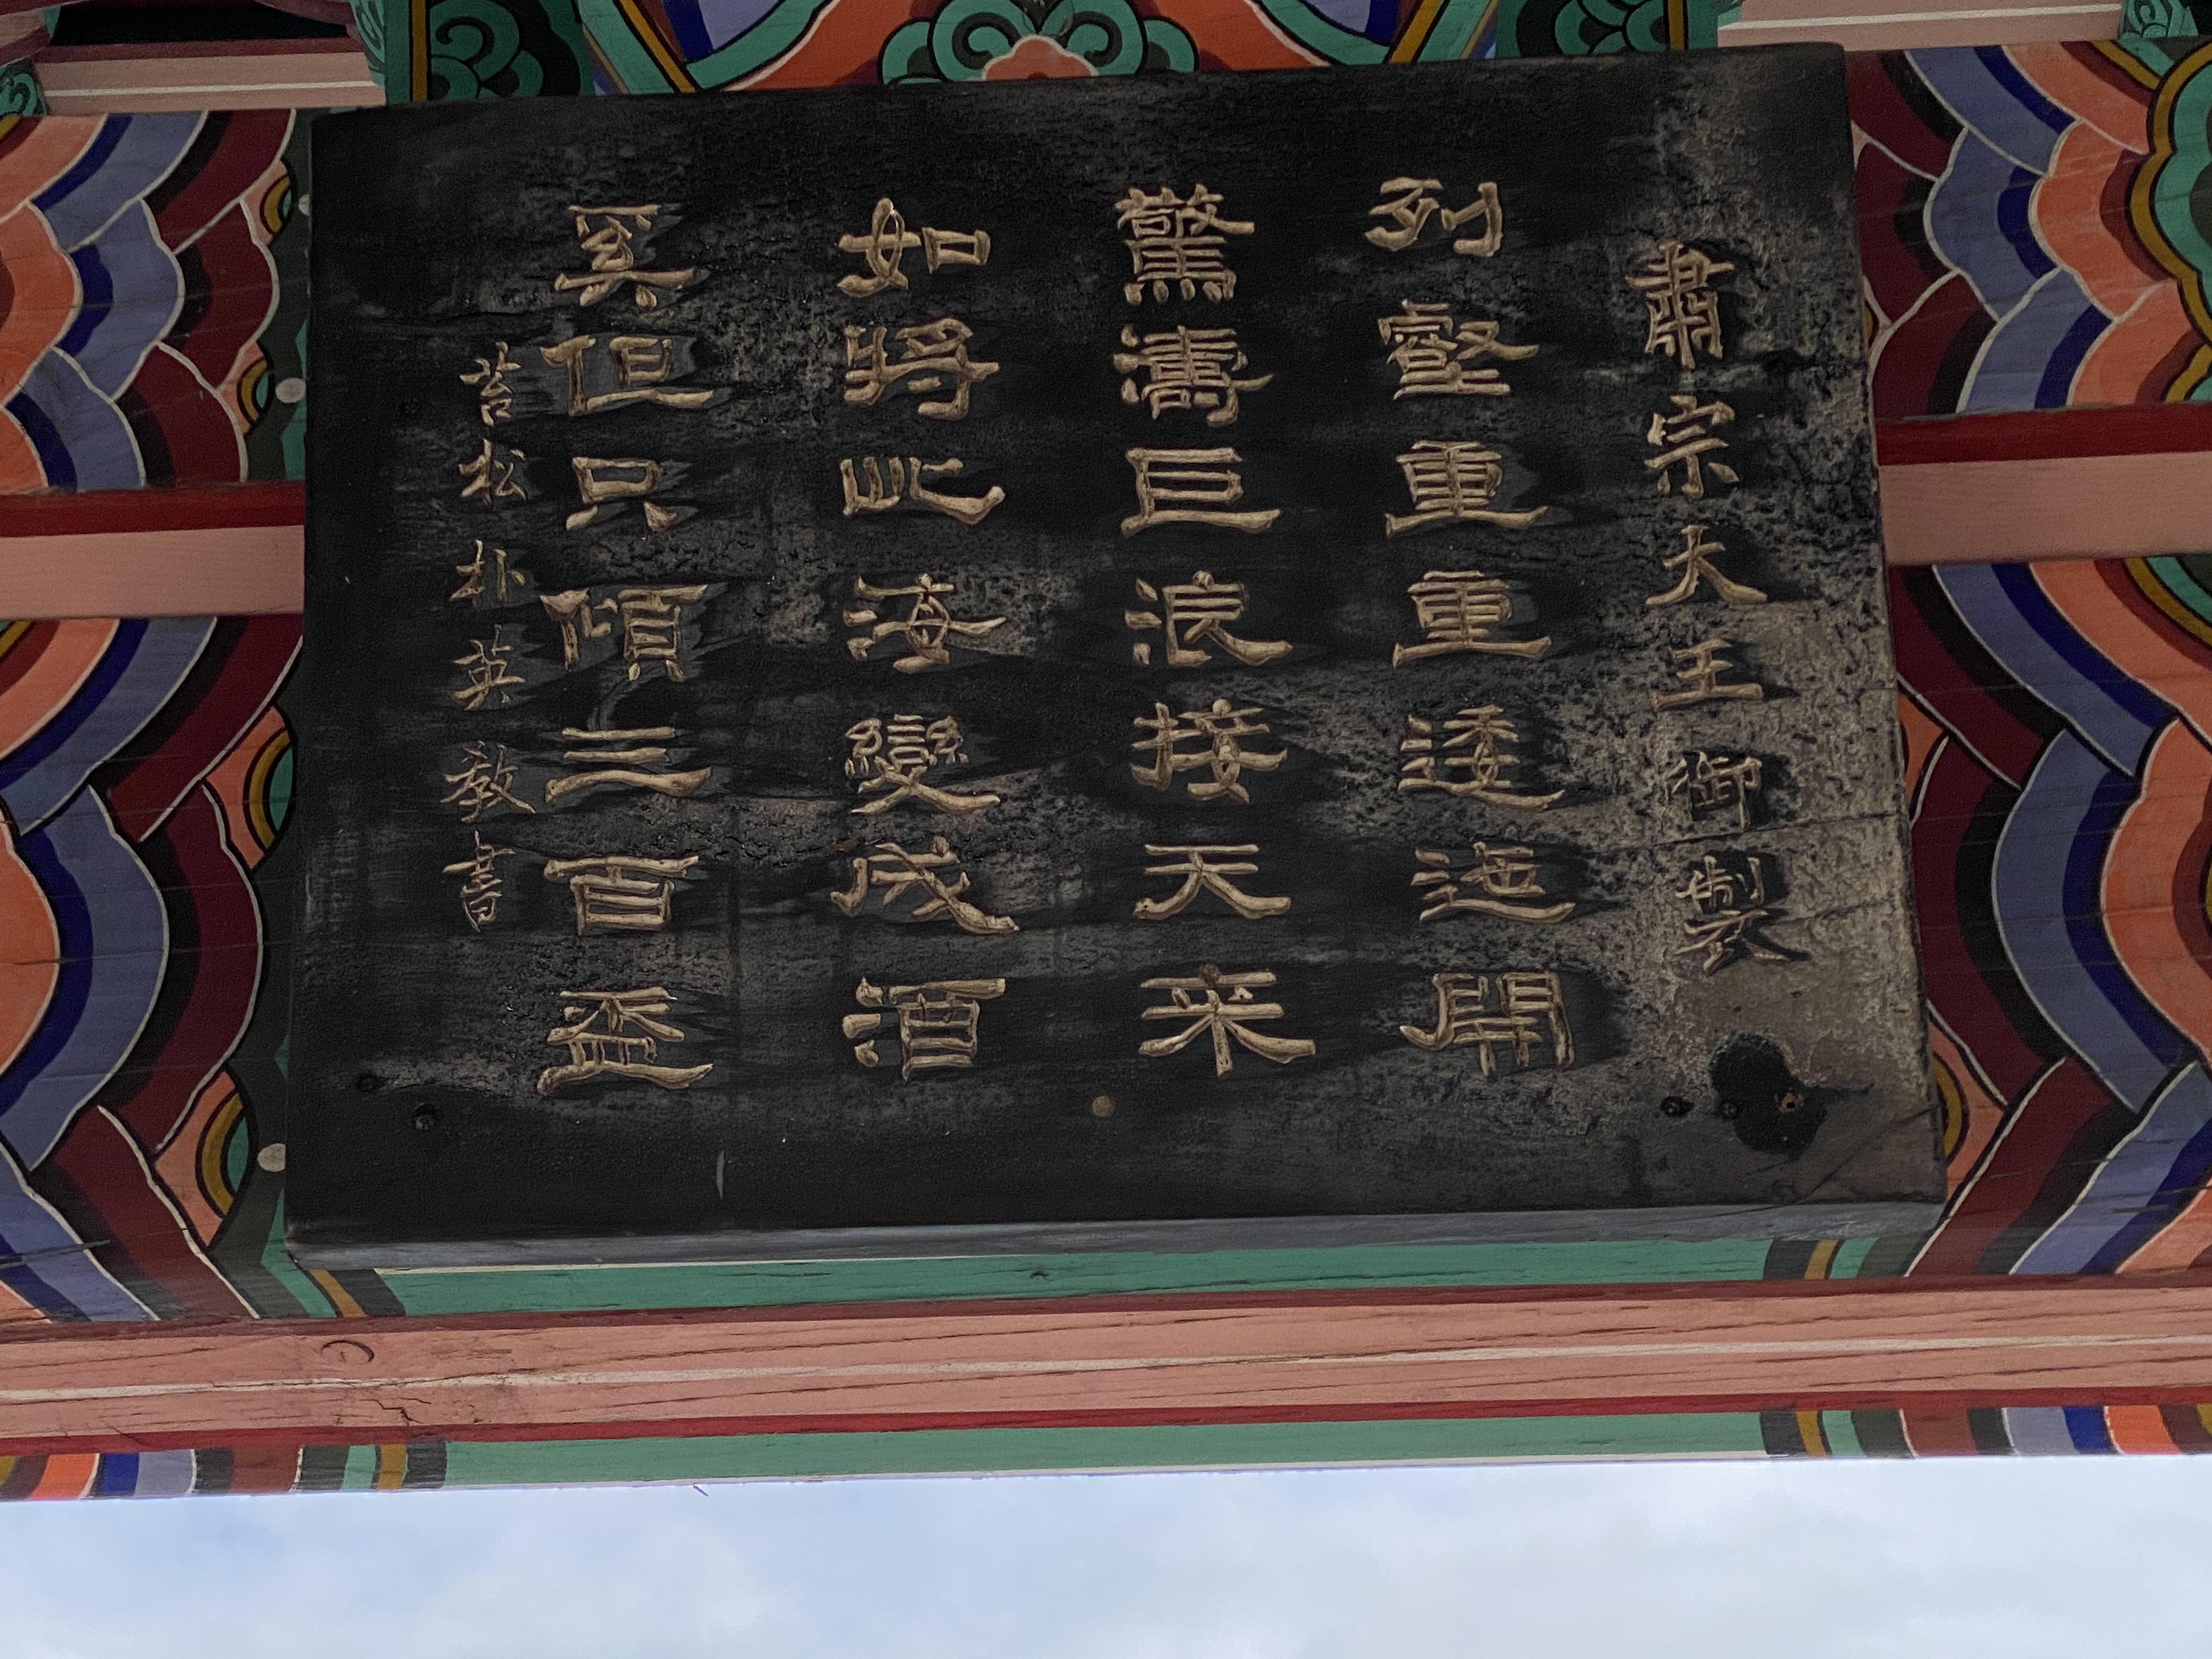 肅宗大王御製
列壑重重逶迤開
驚濤巨浪接天來
如將此海變成酒
奚但只傾三百盃
苔松朴英敎書